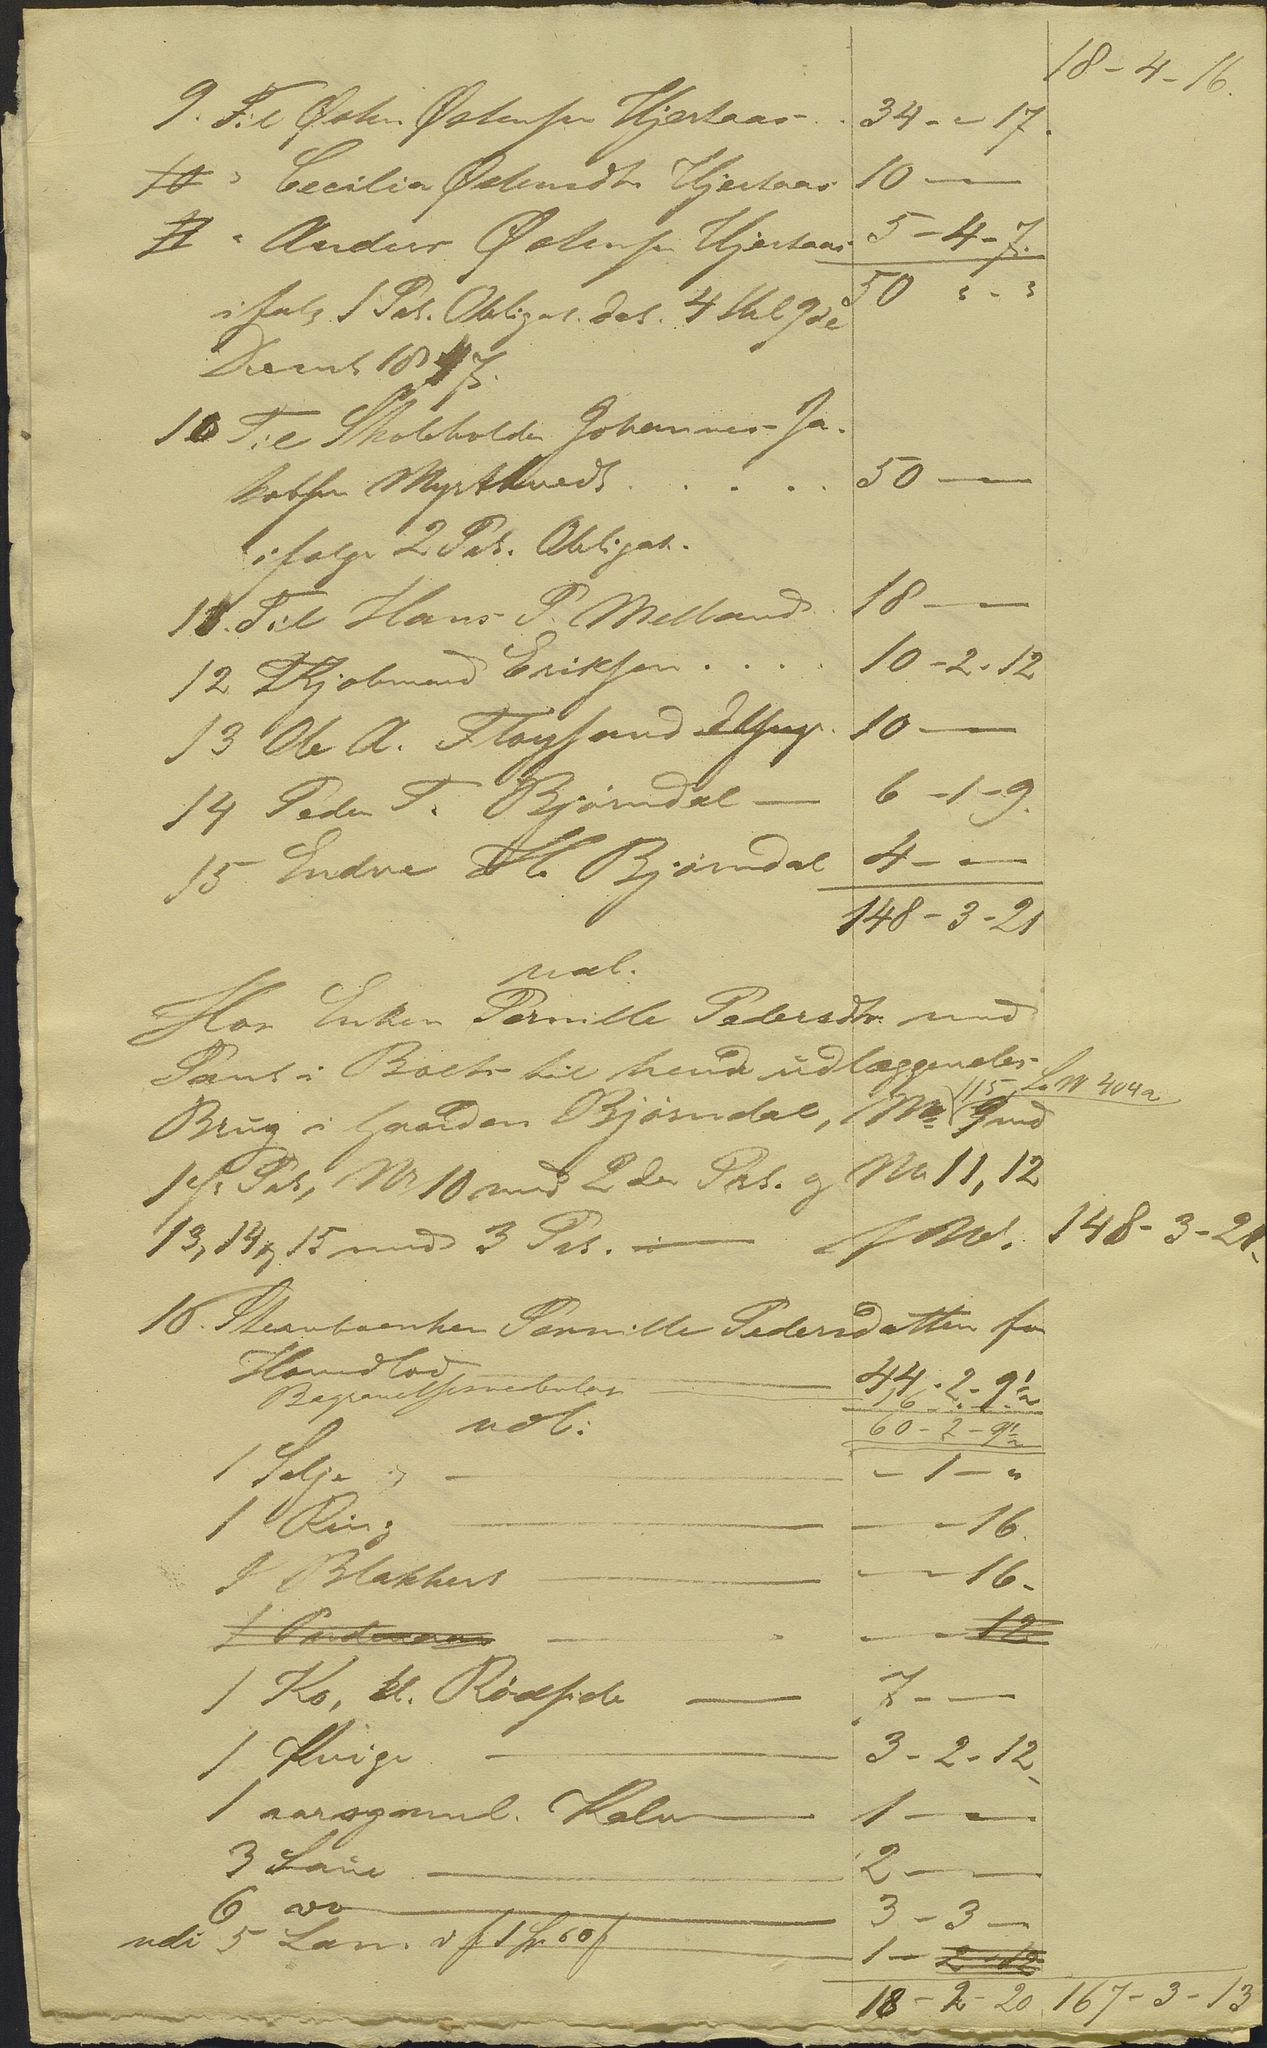 18 - 4 - 16.
9. Til Østen Østensen Hjertaas . 34 - " 17.
10 " Cecilia Østensdtr Hjertaas 10 - " -
11 " Anders Østensen Hjertaas 5 - 4 - 7.
50 " - "
ifølg 1 Pr. Obligat. dat. 4 9de
Decemb 1847.
10 Til Skoleholder Johannes Ja-
kobsen Myrthvedt . . . . 50 - " -
ifølge 2 Pr. Obligat.
11. Til Hans P. Melland . 18 - " -
12 Kjøbmand Eriksen . . . . 10 - 2 - 12
13 Ole A. Fløysand 10 - " -
14 Peder T. Bjørndal — 6 - 1 - 9.
15 Endre H. Bjørndal 4 - " -
148 - 3 - 21
udl.
Hos Enken Pernille Pedersdtr. med
Pant i Boets til hende udlæggendes
Brug i Gaarden Bjørndal, (M No 115, L. N 404a) No 9 med
1ste Prt, Nr 10 med 2den Prt. og No 11, 12
13, 14 og 15 med 3 Prt. — 148 - 3 - 21
16. Stervboenken Pernille Pedersdatter for
Hovedlod — 44 - 2 - 9½
Begravelsesomkostn — 16 - " -
udl: 60 - 2 - 9½
1 Sølje " — - 1 - "
1 Ring — - - 16.
1 Blakkert — - - 16.
1 - - 12
1 Ko, k. Rødside — 7 - " -
1 Kvige — 3 - 2 - 12
1 aarsgammel. Kalv — 1 - " -
3 Saue — 2 - " -
6 do — 3 - 3 -
udi 5 Lam — 1 - 2 - 12
18 - 2 - 20 167 - 3 - 13